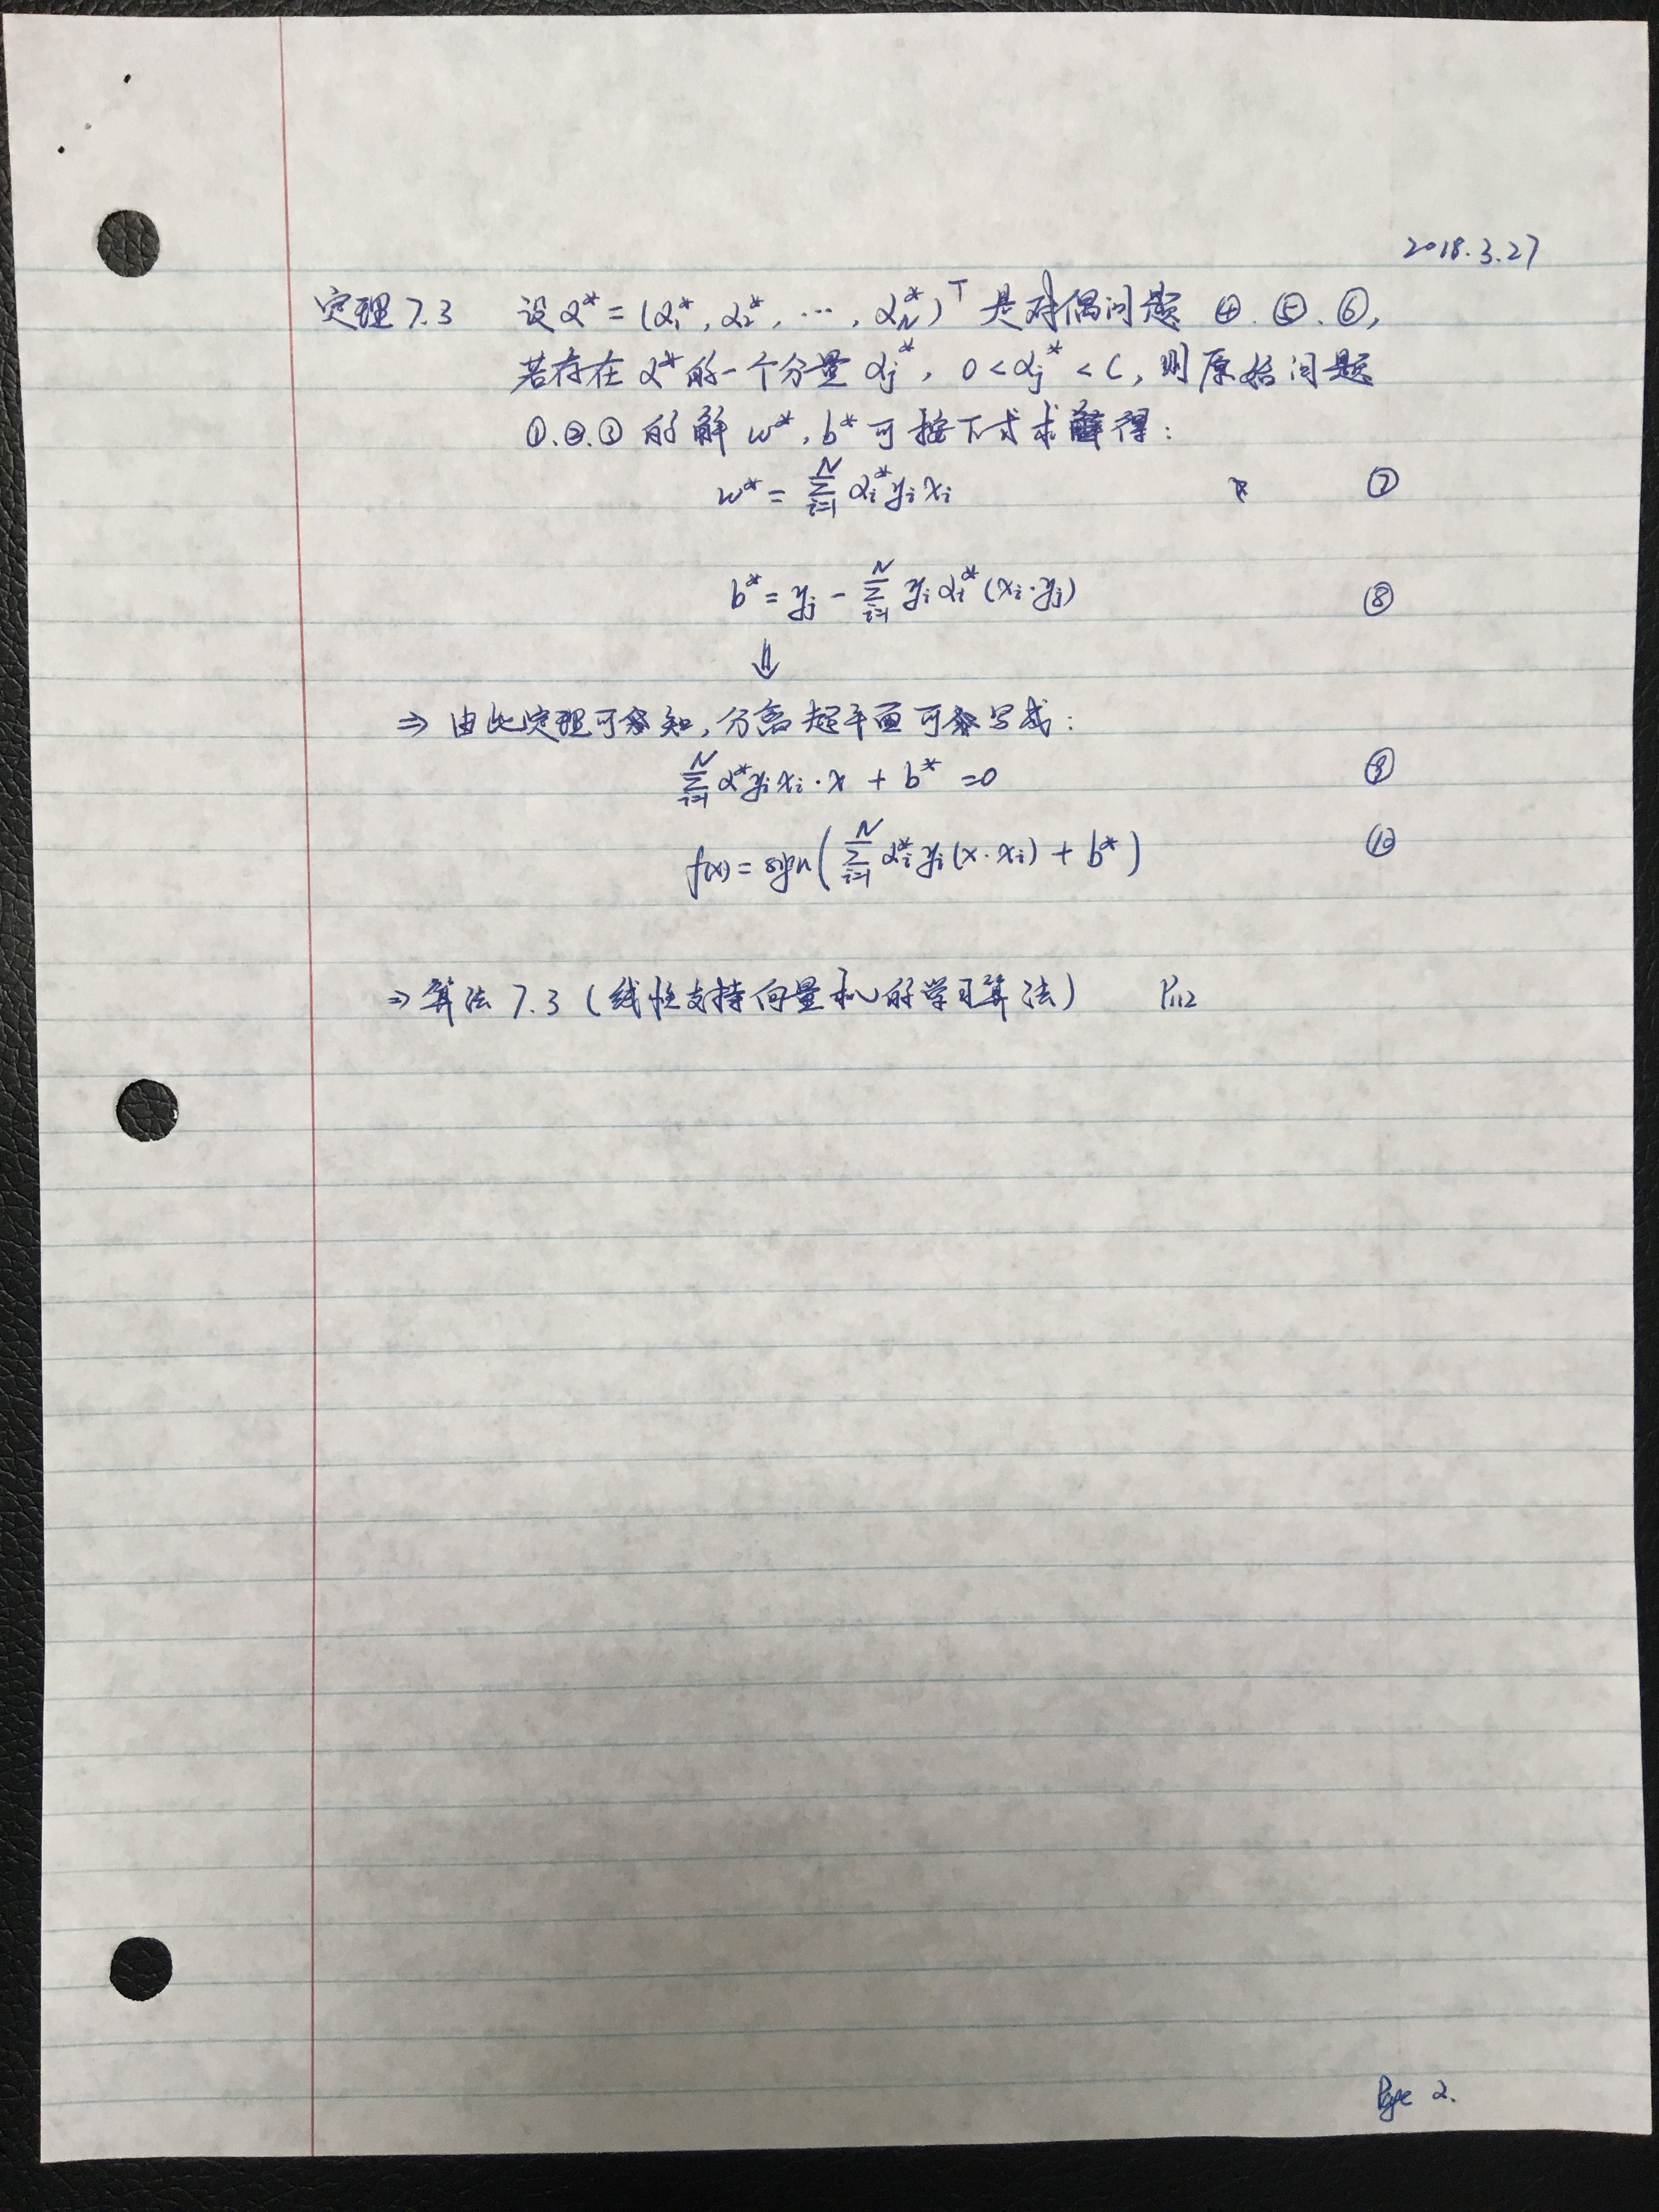 2018.3.27
定理7.3 设α* = (α₁*, α₂*, ⋯, α_N*)ᵀ 是对偶问题 ④.⑤.⑥,
若存在α*的一个分量 αⱼ*, 0 < αⱼ* < C, 则原始问题
①.②.③ 的解 w*, b* 可按下式求得:
w* = ∑_{i=1}^{N} αᵢ* yᵢ xᵢ ⑦
b* = yⱼ - ∑_{i=1}^{N} yᵢ αᵢ* (xᵢ·yⱼ) ⑧
⇓
⇒ 由此定理可知, 分离超平面可写成:
∑_{i=1}^{N} α* yᵢ xᵢ · x + b* = 0 ⑨
f(x) = sign(∑_{i=1}^{N} αᵢ* yᵢ (x·xᵢ) + b*) ⑩
⇒ 算法 7.3 (线性支持向量机的学习算法) P₁₁₂
Page 2.